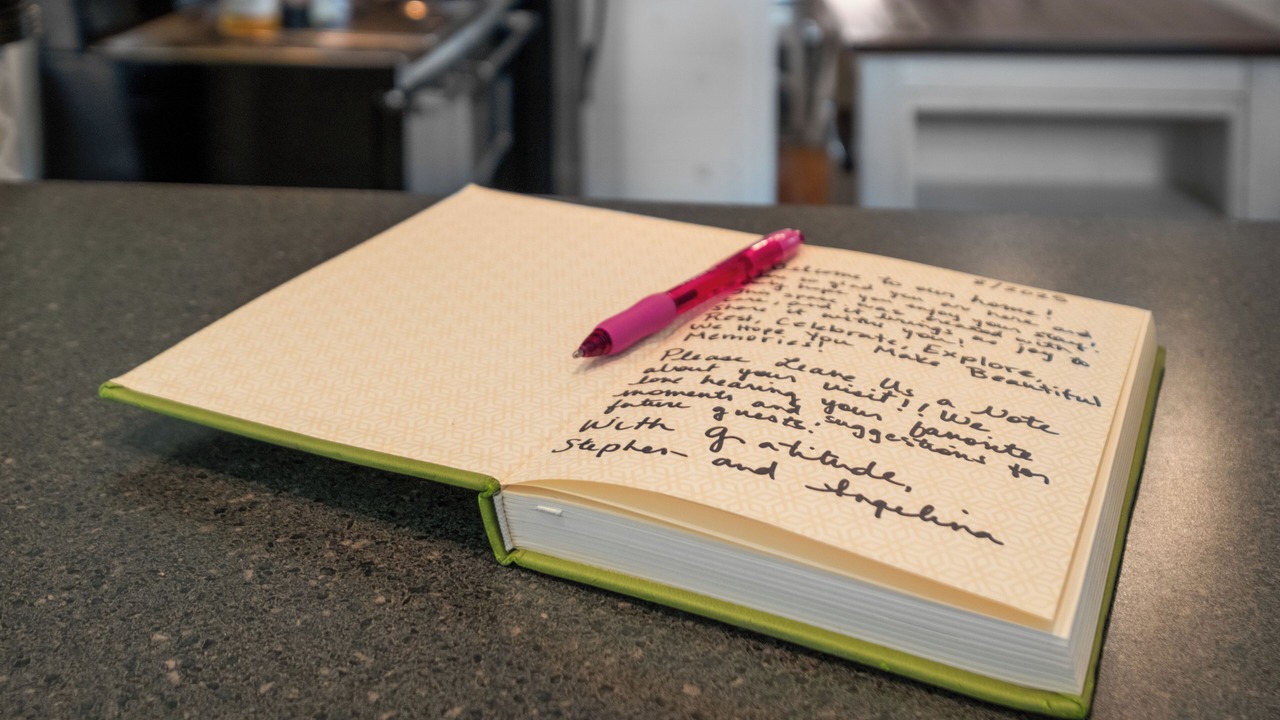 8/2025
elcome to our home!
glad you are here and
you enjoy your stay.
Rest, Celebrate, Explore
We Hope You Make Beautiful
Memories!
Please Leave Us a Note
about your visit! We
love hearing your favorite
moments and suggestions for
future guests.
With gratitude,
Stephen and Angelina